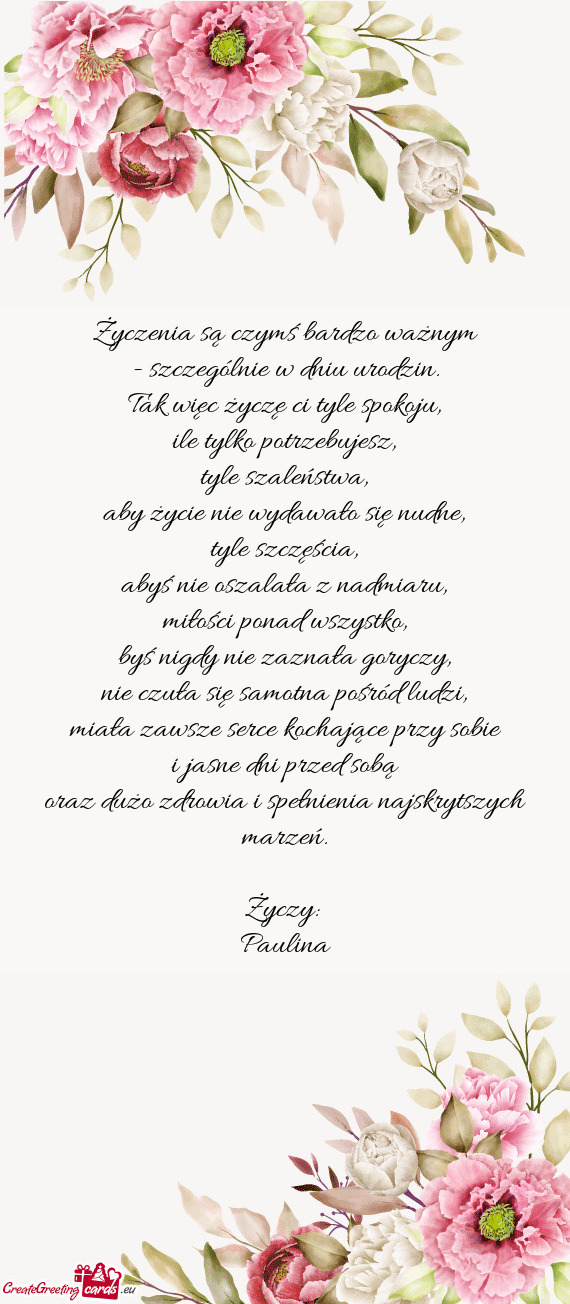 Życzenia są czymś bardzo ważnym
- szczególnie w dniu urodzin.
Tak więc życzę ci tyle spokoju,
ile tylko potrzebujesz,
tyle szaleństwa,
aby życie nie wydawało się nudne,
tyle szczęścia,
abyś nie oszalała z nadmiaru,
miłości ponad wszystko,
byś nigdy nie zaznała goryczy,
nie czuła się samotna pośród ludzi,
miała zawsze serce kochające przy sobie
i jasne dni przed sobą
oraz dużo zdrowia i spełnienia najskrytszych
marzeń.
Życzy:
Paulina
CreateGreeting cards .eu